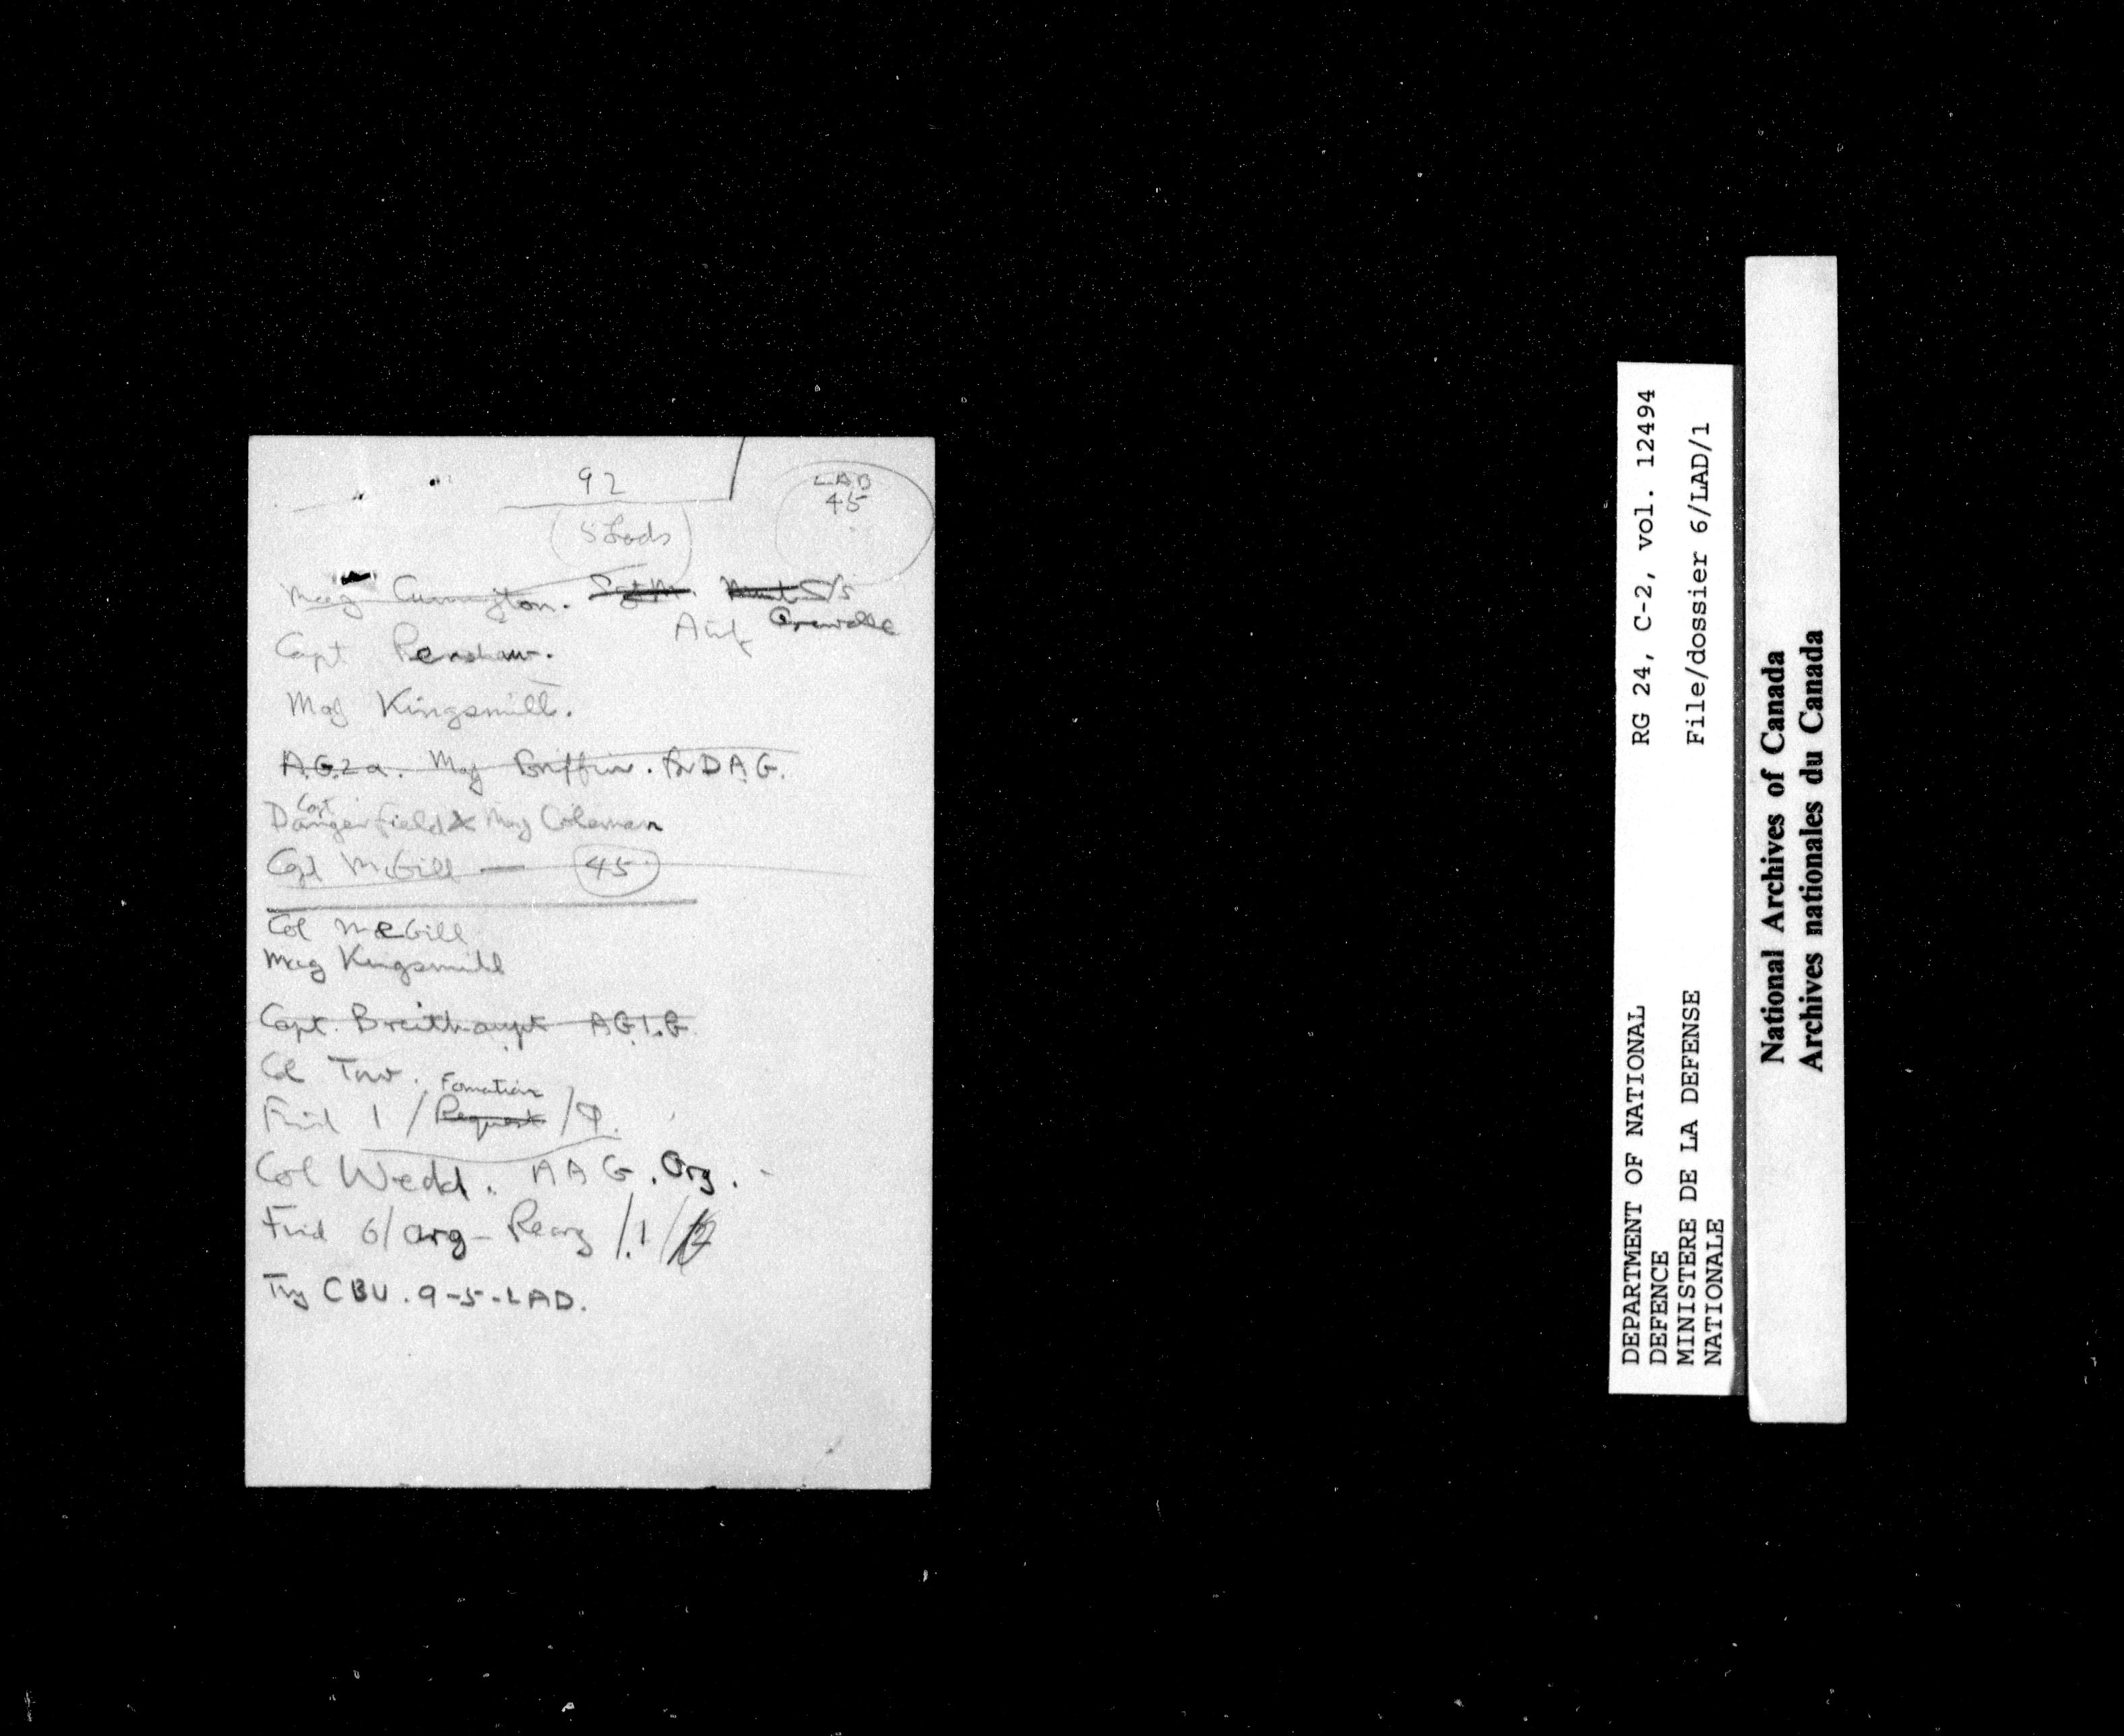 92
LAD
45
5 Lads
Maj Currington.
Capt Renshaw.
Maj Kingsmill.
A.G.2a. Maj Griffin. for D.A.G.
Capt
Dangerfield & Maj Coleman
Capt McGill — 45
Col McGill
Maj Kingsmill
Capt. Breithaupt AG1.G.
Col Tow.
Formation
Find 1/Request/9.
Col Wedd. AAG. Org.
Find 6/Org-Reorg/1/
Try CBU. 9-5-LAD.
DEPARTMENT OF NATIONAL RG 24, C-2, vol. 12494
DEFENCE
MINISTERE DE LA DEFENSE File/dossier 6/LAD/1
NATIONALE
National Archives of Canada
Archives nationales du Canada